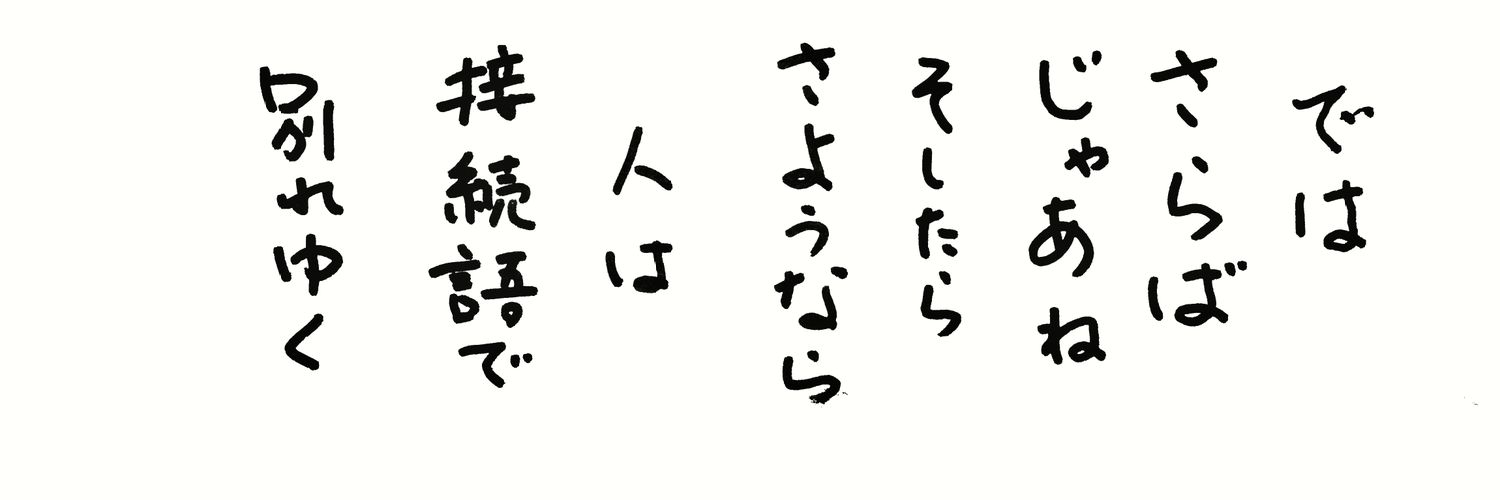 では
さらば
じゃあね
そしたら
さようなら
人は
接続語で
別れゆく